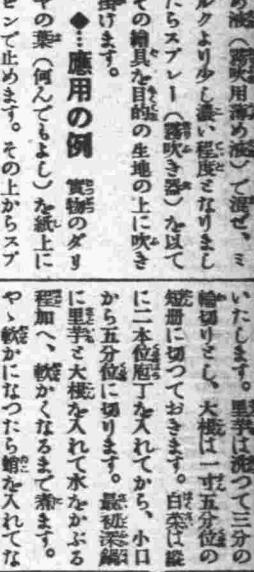 め液（霧吹用薄め液）で混ぜ、ミ
ルクより少し濃い程度となりまし
たらスプレー（霧吹き器）を以て
その繪具を目的の生地の上に吹き
掛けます。
◆…應用の例　實物のダリ
ヤの葉（何んでもよし）を紙上に
ピンで止めます。その上からスプ
いたします。里芋は洗つて三分の
輪切りとし、大根は一寸五分位の
短册に切つておきます。白菜は縱
に二本位庖丁を入れてから、小口
から五分位に切ります。最初深鍋
に里芋と大根を入れて水をかぶる
程加へ、軟かくなるまで煮ます。
やゝ軟かになつたら蛸を入れてな